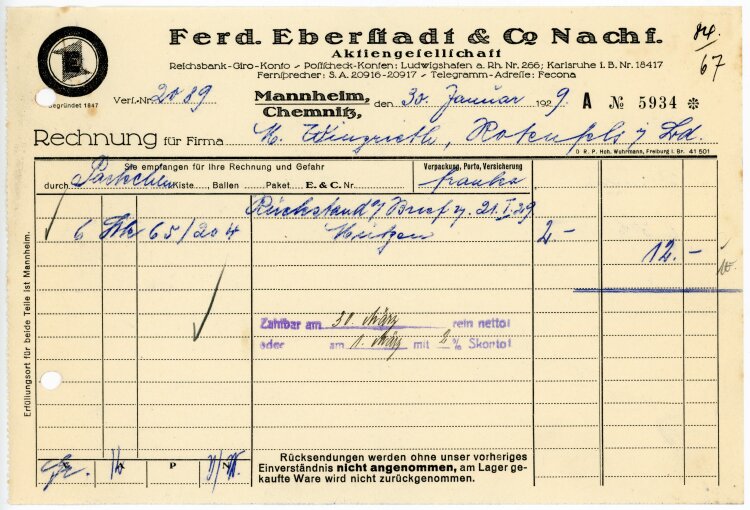 Ferd. Eberstadt & Co Nachf.
Aktiengesellschaft
Reichsbank-Giro-Konto - Postscheck-Konten: Ludwigshafen a. Rh. Nr. 266; Karlsruhe i. B. Nr. 18417
Fernsprecher: S.A. 20916-20917 - Telegramm-Adresse: Fecona
67
E
Gegründet 1847
Vers.-Nr. 2089
Mannheim,
Chemnitz, den 30. Januar 1929. A № 5934 ✻
Rechnung für Firma M. Rotenfels
D. R. P. Hch. Wuhrmann, Freiburg i. Br. 41 501
Sie empfangen für Ihre Rechnung und Gefahr
Verpackung, Porto, Versicherung
durch Päckchen Kiste Ballen Paket E. & C. Nr.
franko
Rückstand Brief v. 21.I.29
6 Stk 65/204 Mützen 2- 12.-
Zahlbar am 30. März rein netto!
oder am 1. März mit 2% Skonto!
Erfüllungsort für beide Teile ist Mannheim.
P N
Rücksendungen werden ohne unser vorheriges
Einverständnis nicht angenommen, am Lager ge-
kaufte Ware wird nicht zurückgenommen.